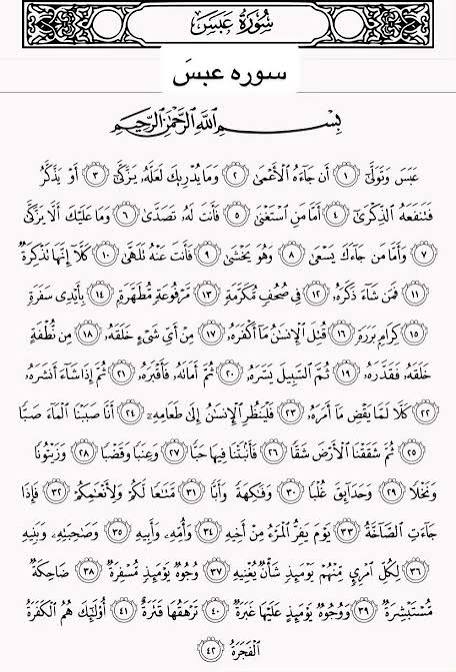 سُورَةُ عَبَسَ
سوره عبسَ
بِسْمِ اللَّهِ الرَّحْمَٰنِ الرَّحِيمِ
عَبَسَ وَتَوَلَّىٰٓ ١ أَن جَآءَهُ الْأَعْمَىٰ ٢ وَمَا يُدْرِيكَ لَعَلَّهُۥ يَزَّكَّىٰٓ ٣ أَوْ يَذَّكَّرُ
فَتَنفَعَهُ الذِّكْرَىٰٓ ٤ أَمَّا مَنِ اسْتَغْنَىٰ ٥ فَأَنتَ لَهُۥ تَصَدَّىٰ ٦ وَمَا عَلَيْكَ أَلَّا يَزَّكَّىٰ
٧ وَأَمَّا مَن جَآءَكَ يَسْعَىٰ ٨ وَهُوَ يَخْشَىٰ ٩ فَأَنتَ عَنْهُ تَلَهَّىٰ ١٠ كَلَّآ إِنَّهَا تَذْكِرَةٌ
١١ فَمَن شَآءَ ذَكَرَهُۥ ١٢ فِي صُحُفٍ مُّكَرَّمَةٍ ١٣ مَّرْفُوعَةٍ مُّطَهَّرَةٍۭ ١٤ بِأَيْدِي سَفَرَةٍ
١٥ كِرَامٍۭ بَرَرَةٍ ١٦ قُتِلَ الْإِنسَٰنُ مَآ أَكْفَرَهُۥ ١٧ مِنْ أَيِّ شَيْءٍ خَلَقَهُۥ ١٨ مِن نُّطْفَةٍ
خَلَقَهُۥ فَقَدَّرَهُۥ ١٩ ثُمَّ السَّبِيلَ يَسَّرَهُۥ ٢٠ ثُمَّ أَمَاتَهُۥ فَأَقْبَرَهُۥ ٢١ ثُمَّ إِذَا شَآءَ أَنشَرَهُۥ
٢٢ كَلَّا لَمَّا يَقْضِ مَآ أَمَرَهُۥ ٢٣ فَلْيَنظُرِ الْإِنسَٰنُ إِلَىٰ طَعَامِهِۦٓ ٢٤ أَنَّا صَبَبْنَا الْمَآءَ صَبًّا
٢٥ ثُمَّ شَقَقْنَا الْأَرْضَ شَقًّا ٢٦ فَأَنۢبَتْنَا فِيهَا حَبًّا ٢٧ وَعِنَبًا وَقَضْبًا ٢٨ وَزَيْتُونًا
وَنَخْلًا ٢٩ وَحَدَآئِقَ غُلْبًا ٣٠ وَفَٰكِهَةً وَأَبًّا ٣١ مَّتَٰعًا لَّكُمْ وَلِأَنْعَٰمِكُمْ ٣٢ فَإِذَا
جَآءَتِ الصَّآخَّةُ ٣٣ يَوْمَ يَفِرُّ الْمَرْءُ مِنْ أَخِيهِ ٣٤ وَأُمِّهِۦ وَأَبِيهِ ٣٥ وَصَٰحِبَتِهِۦ وَبَنِيهِ
٣٦ لِكُلِّ امْرِئٍ مِّنْهُمْ يَوْمَئِذٍ شَأْنٌ يُغْنِيهِ ٣٧ وُجُوهٌ يَوْمَئِذٍ مُّسْفِرَةٌ ٣٨ ضَاحِكَةٌ
مُّسْتَبْشِرَةٌ ٣٩ وَوُجُوهٌ يَوْمَئِذٍ عَلَيْهَا غَبَرَةٌ ٤٠ تَرْهَقُهَا قَتَرَةٌ ٤١ أُولَٰٓئِكَ هُمُ الْكَفَرَةُ
الْفَجَرَةُ ٤٢